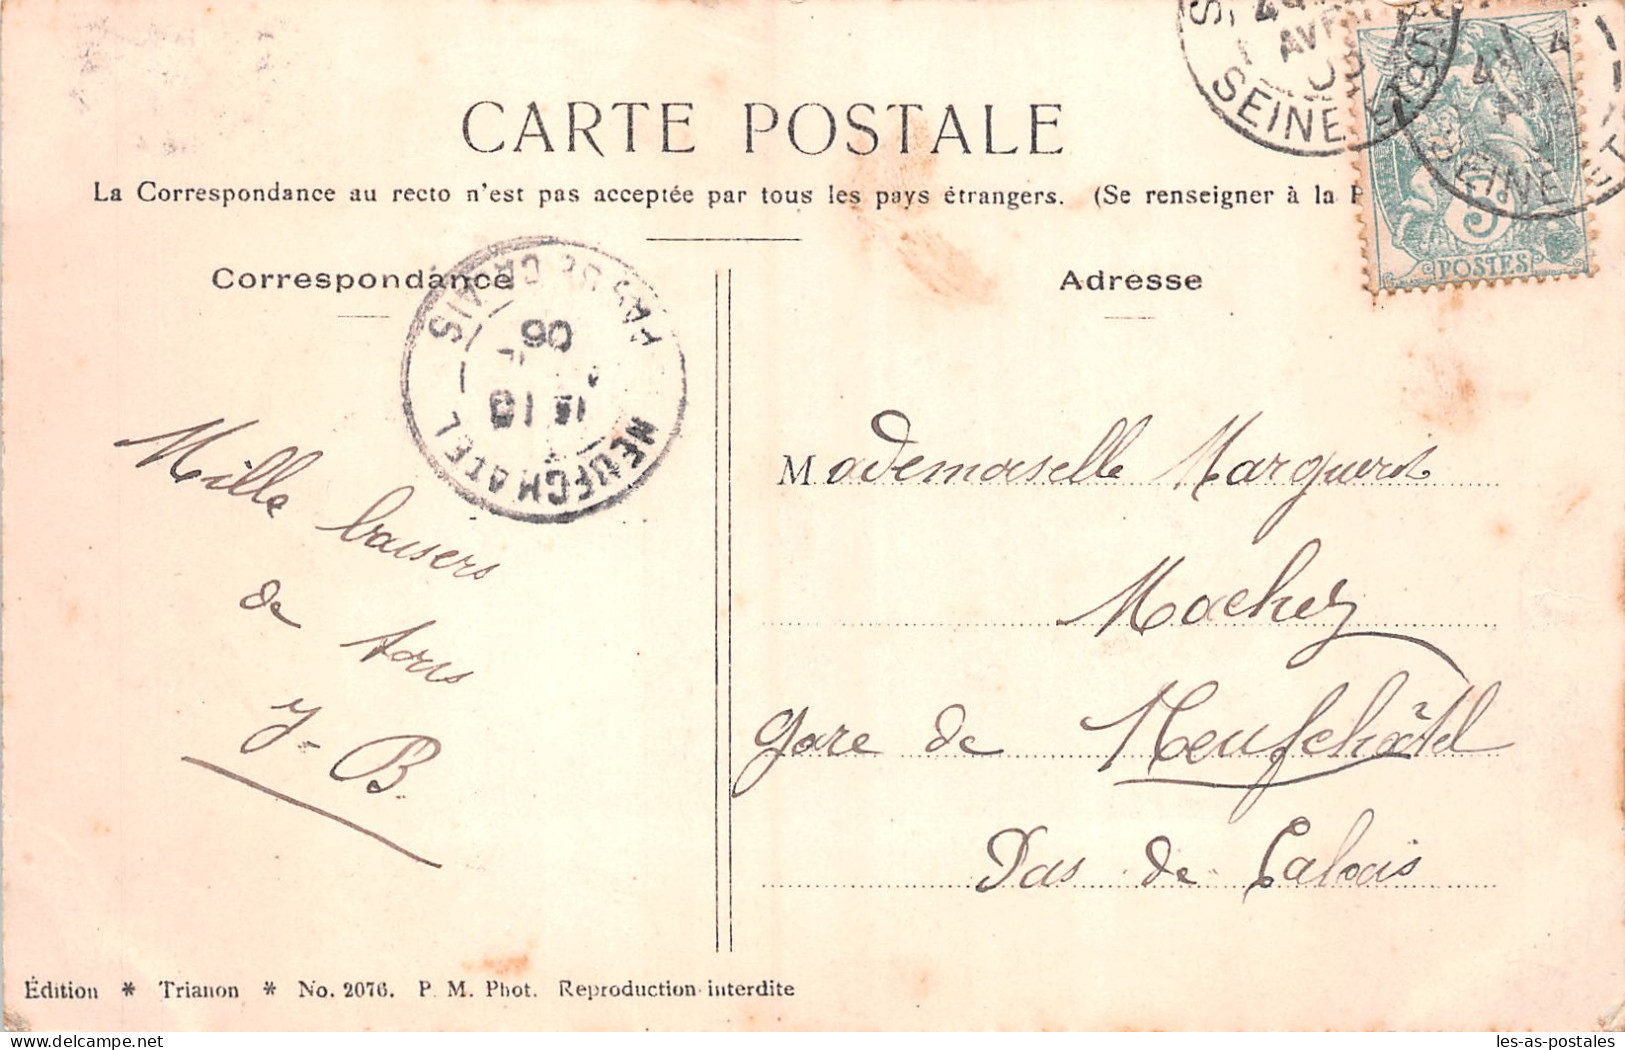 CARTE POSTALE
La Correspondance au recto n'est pas acceptée par tous les pays étrangers. (Se renseigner à la P
Correspondance
Adresse
POSTES
5
SEINE
AVR
SEINE ET
PAS DE CALAIS
06
NEUFCHATEL
Mille baisers
de tous
Y-B.
Mademoiselle Marguerite
Machez
gare de Neufchâtel
Pas de Calais
Édition * Trianon * No. 2076. P. M. Phot. Reproduction interdite
les-as-postales
delcampe.net